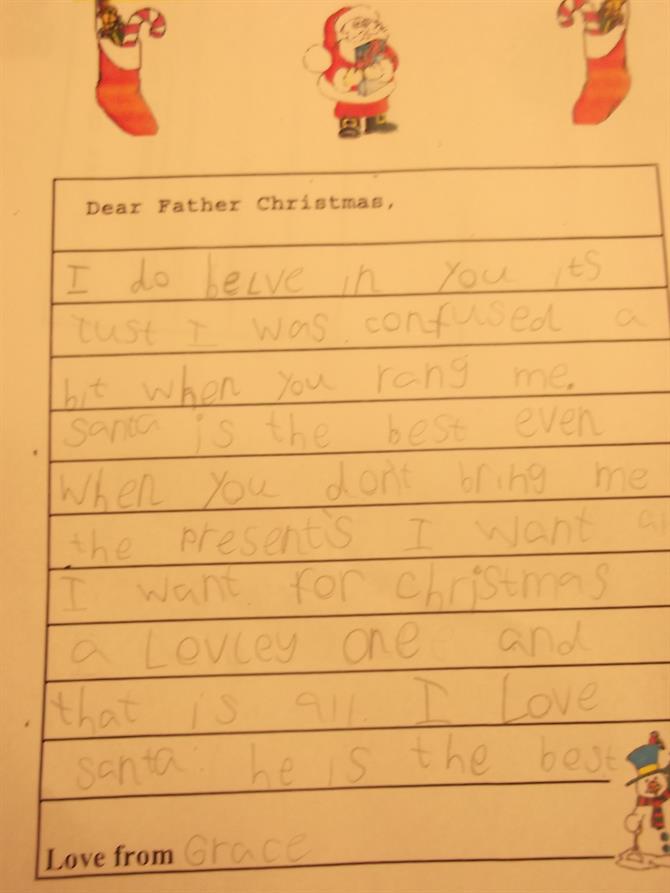 Dear Father Christmas,
I do belve in you its
Just I was confused a
bit when you rang me.
Santa is the best even
when you don't bring me
the present's I want al
I want for christmas
a Lovley one and
that is all. I Love
Santa. he is the best
Love from Grace